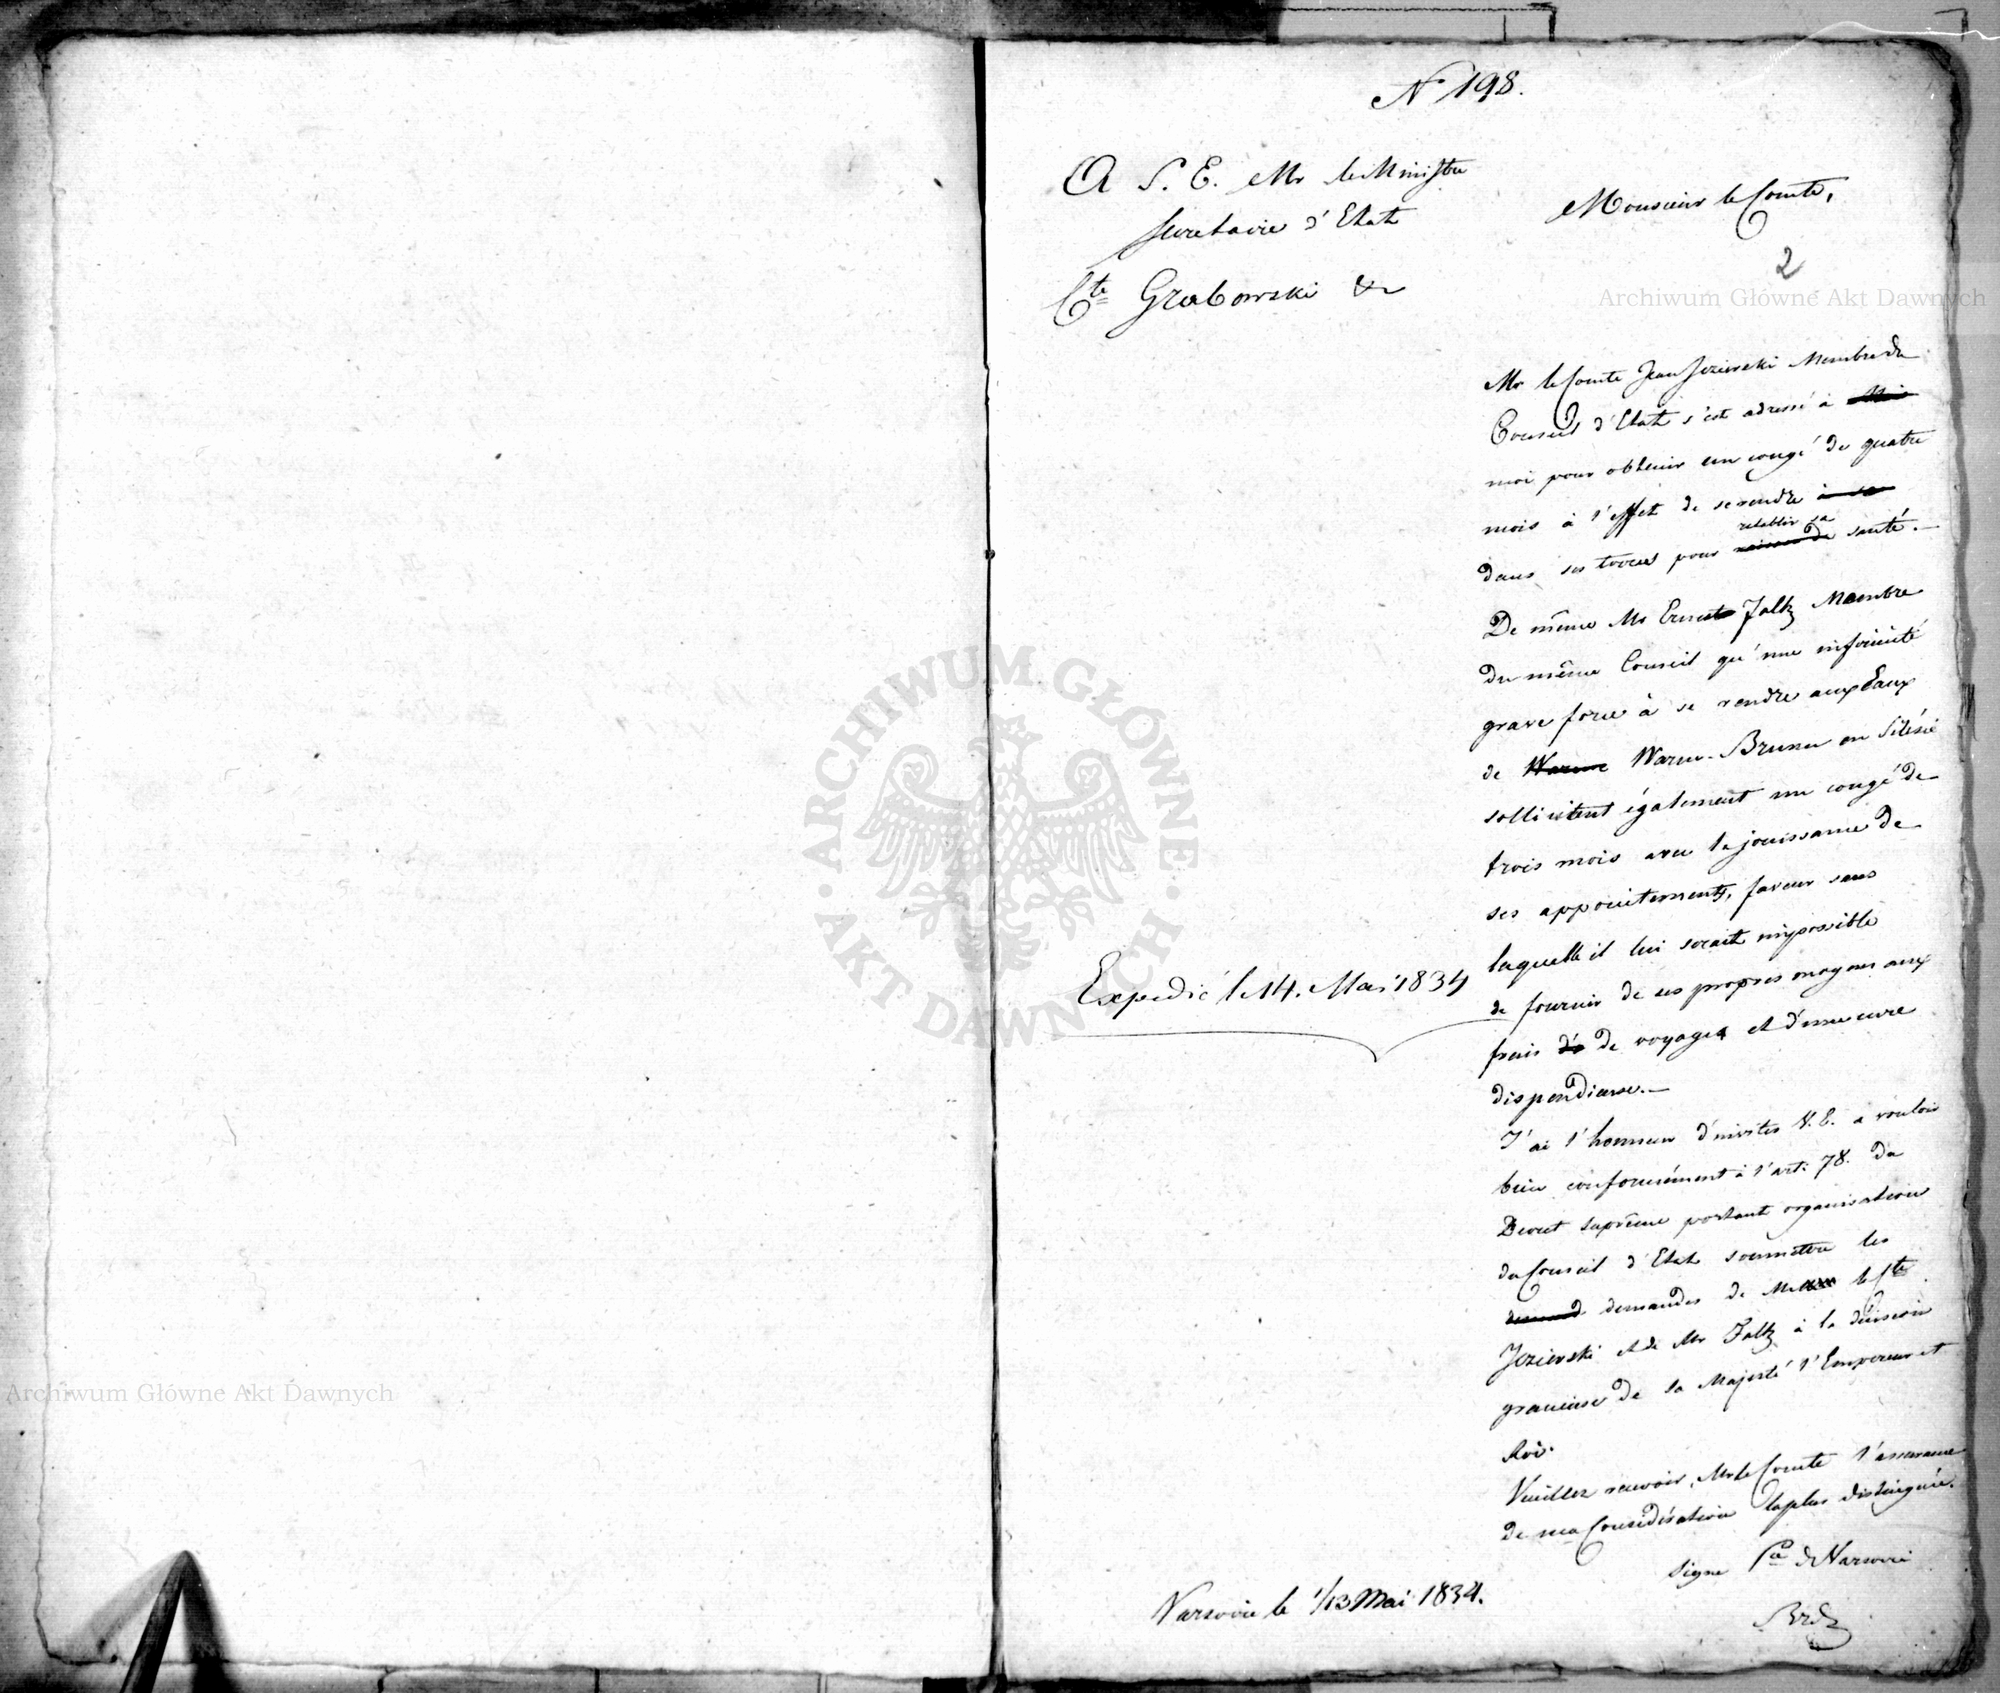 N 198.
A S. E. Mr le Ministre
Secretaire d'Etat
Cte Grabowski &c
Monsieur le Comte,
2
Archiwum Główne Akt Dawnych
Mr le Comte Jean Jezierski Membre du
Conseil d'Etat s'est adressé à
moi pour obtenir un congé de quatre
mois à l'effet de se rendre à sa
dans ses terres pour retablir sa santé.—
De même Mr Ernest Faltz Membre
du même Conseil qu'une infirmité
grave force à se rendre aux Eaux
de Warme Warm-Brunn en Silésie
sollicitent également un congé de
trois mois avec la jouissance de
ses appointements, faveur sans
laquelle il lui serait impossible
de fournir de ses propres moyens aux
frais de voyage et d'une cure
dispendieuse.—
J'ai l'honneur d'inviter V. E. a vouloir
bien conformément à l'art. 78. du
Decret suprême portant organisation
du Conseil d'Etat soumettre les
demand demandes de Mr le Cte
Jezierski et de Mr Faltz à la décision
gracieuse de Sa Majesté l'Empereur et
Roi.
Veuillez recevoir, Mr le Comte l'assurance
de ma Considération la plus distinguée.
signe Pce de Varsovie
Expedié le 14. Mai 1834
Varsovie le 1/13 Mai 1834.
ARCHIWUM GŁÓWNE
AKT DAWNYCH
Archiwum Główne Akt Dawnych